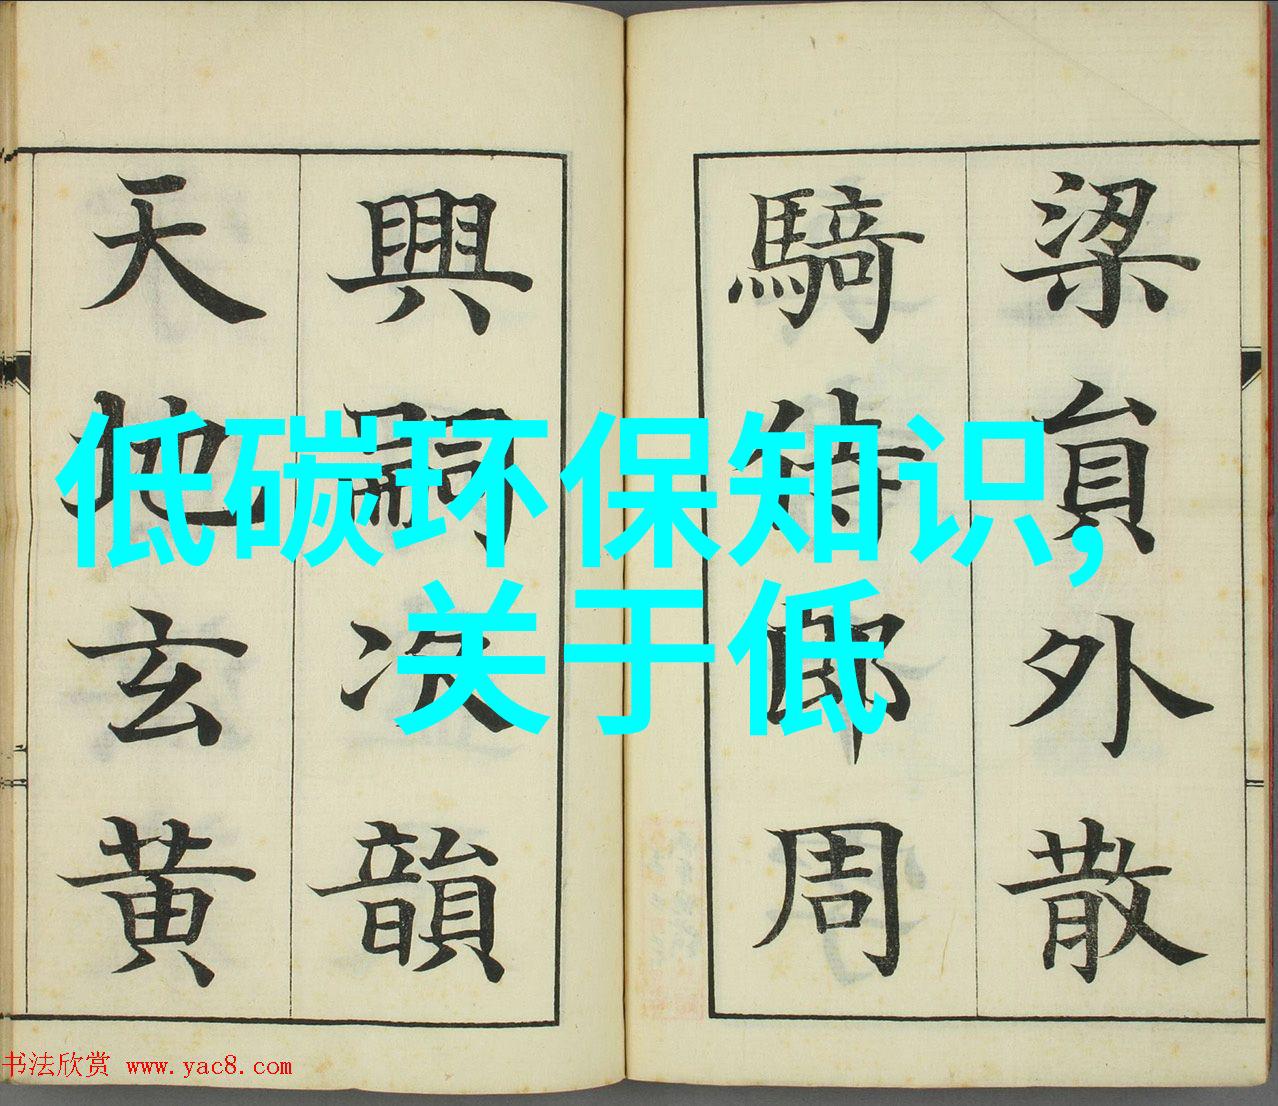 梁貟外散
騎侍郎周
興嗣次韻
天地玄黄
低碳环保知识,
关于低
书法欣赏 www.yac8.com